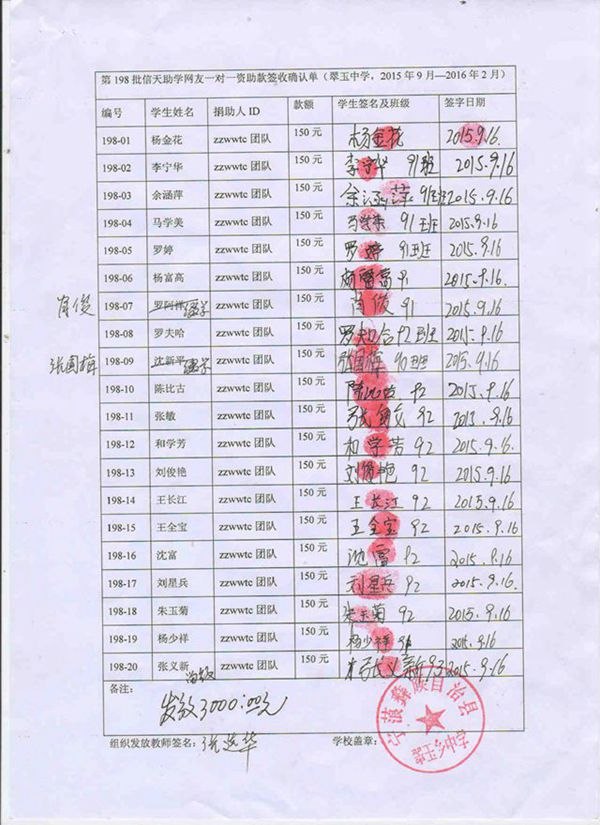 第 198 批信天助学网友一对一资助款签收确认单（翠玉中学，2015 年 9 月—2016 年 2 月）
编号 学生姓名 捐助人 ID 款额 学生签名及班级 签字日期
198-01 杨金花 zzwwtc 团队 150 元 杨金花 2015.9.16
198-02 李宁华 zzwwtc 团队 150 元 李宁华 91班 2015.9.16
198-03 余涵萍 zzwwtc 团队 150 元 余涵萍 91班 2015.9.16
198-04 马学美 zzwwtc 团队 150 元 马学美 91班 2015.9.16
198-05 罗婷 zzwwtc 团队 150 元 罗婷 91班 2015.9.16
198-06 杨富高 zzwwtc 团队 150 元 杨富高 91 2015.9.16
肖俊 198-07 罗阿祥 zzwwtc 团队 150 元 肖俊 91 2015.9.16
198-08 罗夫哈 zzwwtc 团队 150 元 92班 2015.9.16
张国梅 198-09 沈新平 zzwwtc 团队 150 元 张国梅 90班 2015.9.16
198-10 陈比古 zzwwtc 团队 150 元 陈比古 92 2015.9.16
198-11 张敏 zzwwtc 团队 150 元 张敏 92 2015.9.16
198-12 和学芳 zzwwtc 团队 150 元 和学芳 92 2015.9.16
198-13 刘俊艳 zzwwtc 团队 150 元 刘俊艳 92 2015.9.16
198-14 王长江 zzwwtc 团队 150 元 王长江 92 2015.9.16
198-15 王全宝 zzwwtc 团队 150 元 王全宝 92 2015.9.16
198-16 沈富 zzwwtc 团队 150 元 沈富 92 2015.9.16
198-17 刘星兵 zzwwtc 团队 150 元 刘星兵 92 2015.9.16
198-18 朱玉菊 zzwwtc 团队 150 元 朱玉菊 92 2015.9.16
198-19 杨少祥 zzwwtc 团队 150 元 杨少祥 2015.9.16
198-20 张义新 zzwwtc 团队 150 元 张义新 93 2015.9.16
备注：
发放3000.00元
组织发放教师签名： 学校盖章：
宁蒗彝族自治县